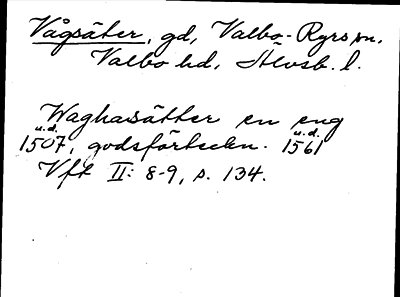 Vågsäter, gd, Valbo-Ryrs sn,
Valbo hd, Älvsb. l.
Waghassätter en eng
u.d. u.d.
1507, godsförteckn. 1561
Vft II: 8-9, s. 134.